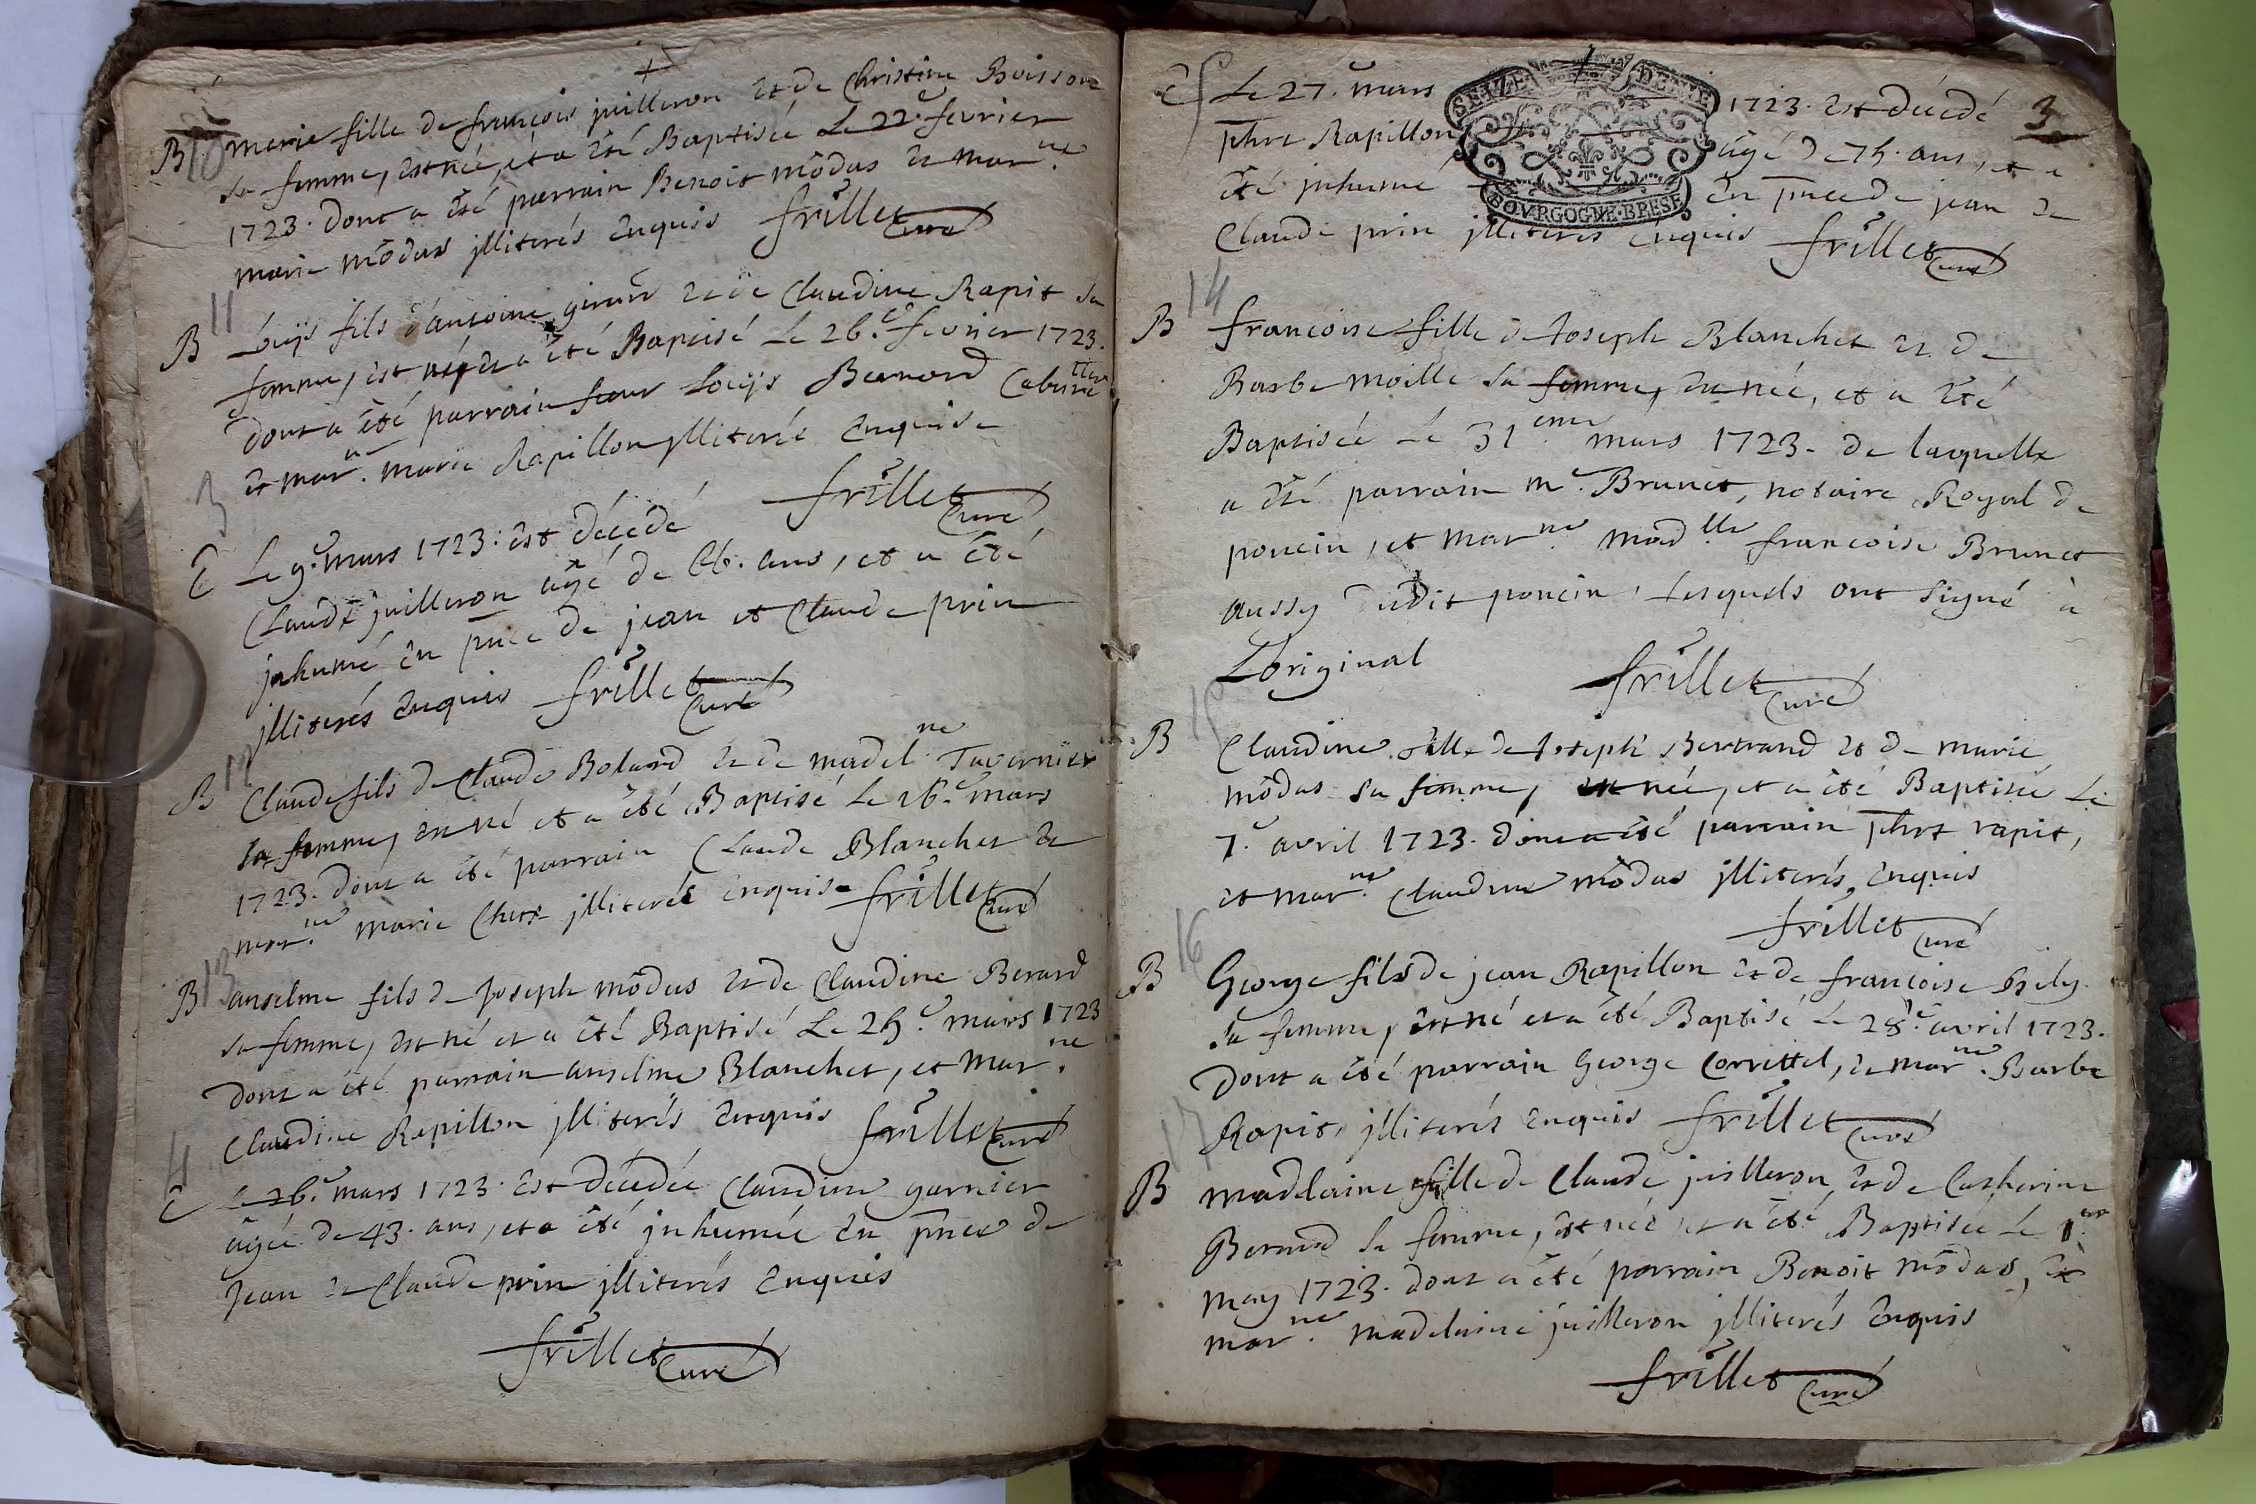 10
B marie fille de françois juilleron et de Christine Buisson
sa femme, est née, et a été Baptisée Le 22.e fevrier
1723. dont a été parrain Benoit môdas et mar.ne
marie môdas jlliterés Enquis frillet Curé
11
B Loüys fils d'antoine girard et de Claudine Rapit sa
femme, est né, et a été Baptisé Le 26.e fevrier 1723.
dont a été parrain sieur Loüys Bernard
et mar.ne marie Rapillon jlliterée Enquise
frillet Curé
3
E Le 9.e mars 1723. est décédé
Claude juilleron âgé de 66. ans, et a été
jnhumé En pnce de jean et Claude prin
jlliterés Enquis frillet Curé
12
B Claude fils de Claude Bolard et de madel.ne Tavernier
sa femme, est né et a été Baptisé Le 16.e mars
1723. dont a été parrain Claude Blanchet et
mar.ne marie jlliterés Enquis frillet Curé
13
B anselme fils de Joseph môdas et de Claudine Berard
sa femme, est né et a été Baptisé Le 25.e mars 1723
dont a été parrain anselme Blanchet, et mar.ne
Claudine Rapillon jlliterés Enquis frillet Curé
4
E Le 26.e mars 1723. Est décédée Claudine garnier
âgée de 43. ans, et a été jnhumée En pnce de
Jean et Claude prin jlliterés Enquis
frillet Curé
3
5
E Le 27.e mars 1723. est décédé
phrt Rapillon âgé de 75. ans, et a
été jnhumé En pnce de jean et
Claude prin jlliterés Enquis frillet Curé
SEIZE DENIE
BOVRGOGNE·BRESE
14
B françoise fille de Joseph Blanchet et de
Barbe moille sa femme, est née, et a été
Baptisée Le 31eme mars 1723. de laquelle
a été parrain m.e Brunet, notaire Royal de
poncin, et mar.ne mad.lle françoise Brunet
aussy dudit poncin, Lesquels ont signé à
L'original frillet Curé
15
B Claudine fille de Joseph Bertrand et de marie
môdas sa femme, est née, et a été Baptisée Le
7.e avril 1723. dont a été parrain phrt rapit,
et mar.ne Claudine môdas jlliterés, Enquis
frillet Curé
16
B George fils de jean Rapillon et de françoise
sa femme, est né et a été Baptisé Le 28.e avril 1723.
dont a été parrain George Corrittel, et mar.ne Barbe
Rapit, jlliterés Enquis frillet Curé
17
B madelaine fille de Claude juilleron, et de Catherine
Bernard sa femme, est née et a été Baptisée Le 1.er
may 1723. dont a été parrain Benoit môdas, et
mar.ne madelaine juilleron jlliterés Enquis
frillet Curé